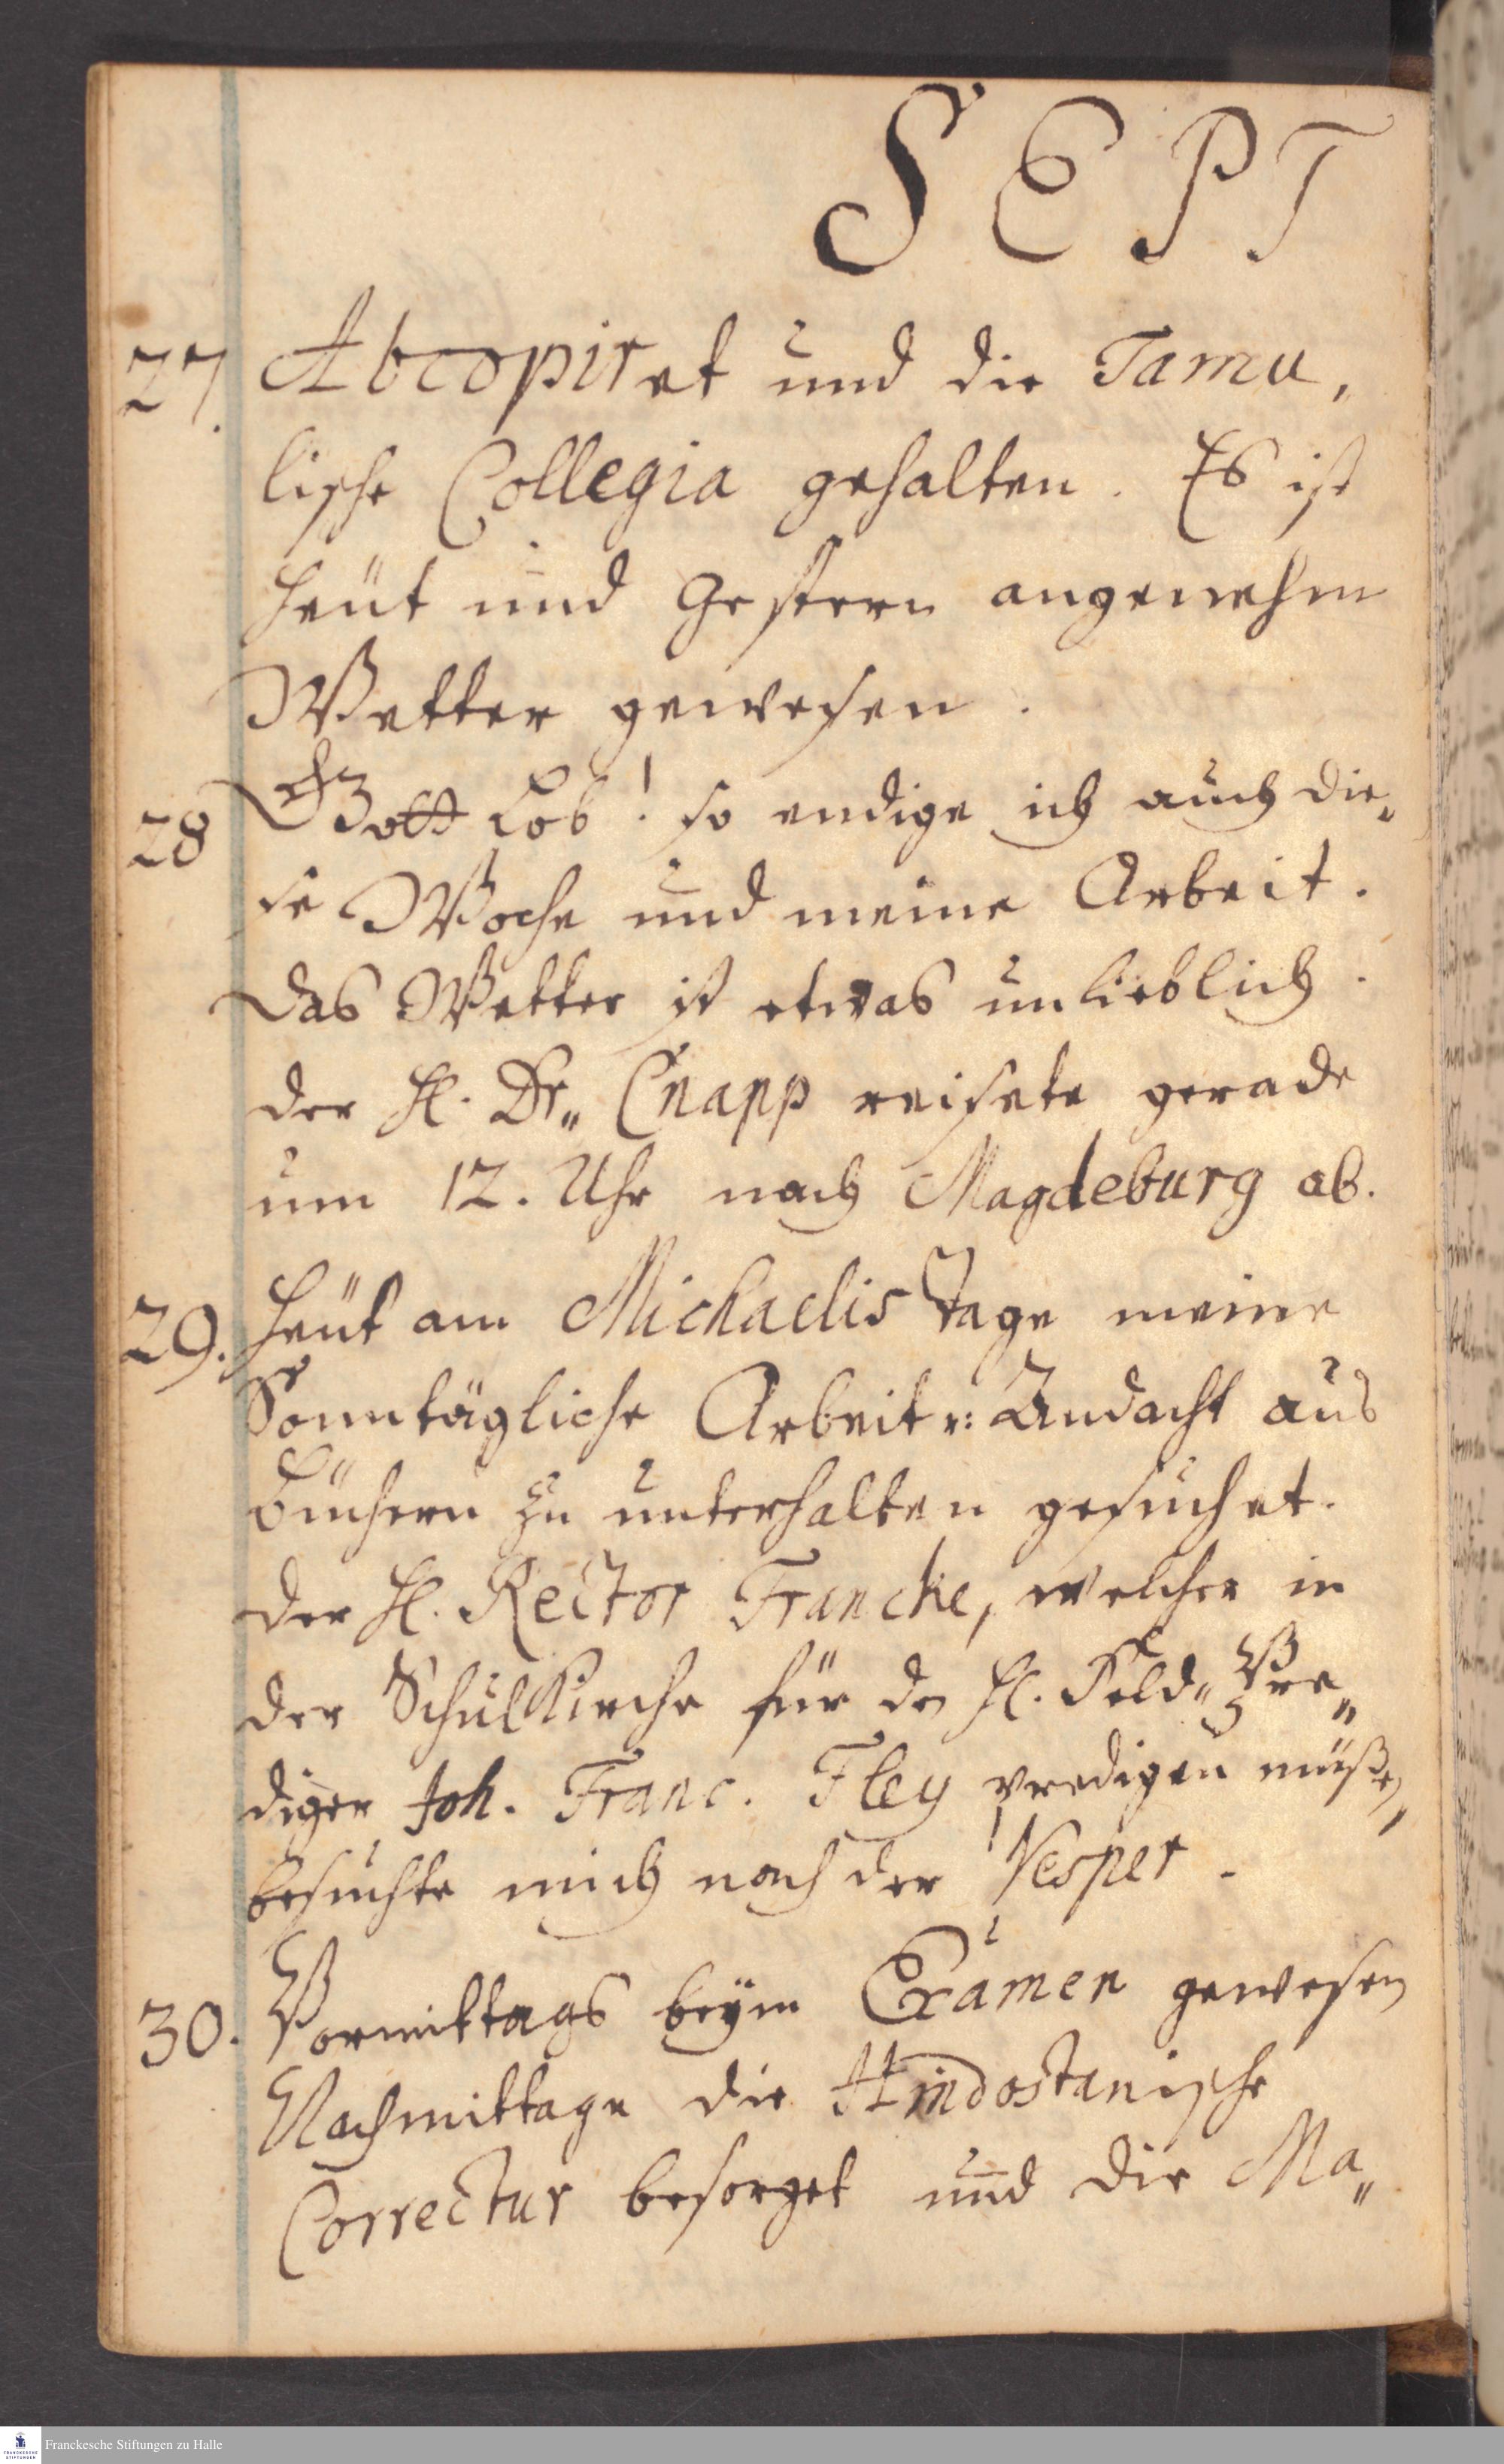 SEPT
27. Abcopiret und die Tamu,
lische Collegia gehalten. Es ist
heüt und Gestern angenehm
Wetter gewesen.
28 Gott Lob! so endige ich auch die„
se Woche und meine Arbeit.
Das Wetter ist etwas unlieblich.
der H. Dr„ Cnapp reisete gerade
um 12. Uhr nach Magdeburg ab.
29. Heüt am Michaelis Tage meine
Sonntägliche Arbeit u: Andacht aus
Büchern zu unterhalten gesuchet.
der H. Rector Francke, welcher in
der Schulkirche für den H. Feld„Pre„
diger Joh. Franc. Fley predigen müßen,
besuchte mich nach der Vesper.
30. Vormittags beÿm Examen gewesen
Nachmittage die Hindostanische
Correctur besorget und die Ma„
FRANCKESCHE STIFTUNGEN
Franckesche Stiftungen zu Halle